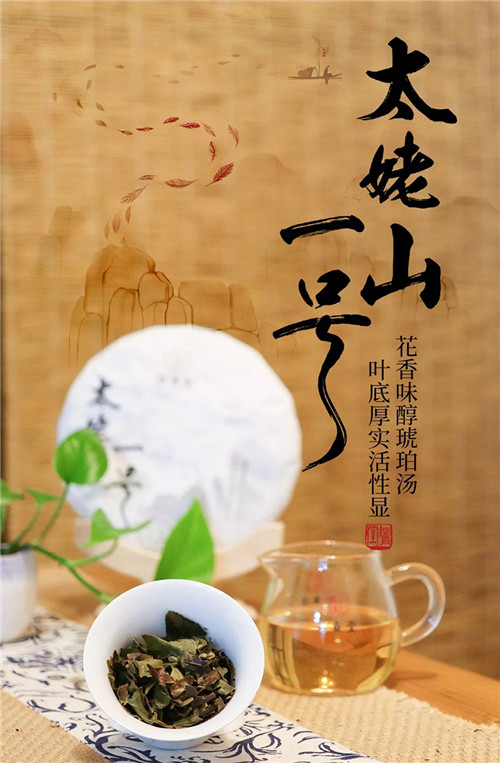 太姥山
一号
花香味醇琥珀汤
叶底厚实活性显
太姥
一号